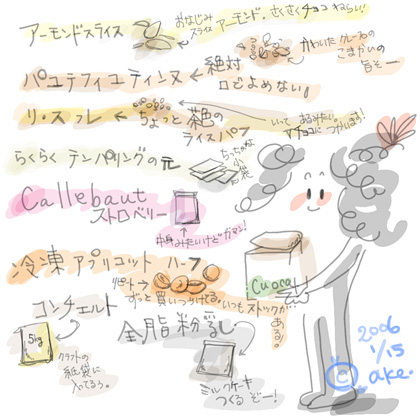 アーモンドスライス
おなじみ
スライス
アーモンド。さくさくチョコねらい!
パユテフィユティンヌ ← 絶対
口でよめない。
かわいた クレープの
こまかいの
旨そー
リ・スフレ ← ちょっと茶色の
ライスパフ
チョコにつかいます!
らくらく テンパリングの元
ちっちゃな
小袋
Callebaut
ストロベリー
中身みたいけどガマン!
冷凍アプリコット ハーフ
リピート→
ずっと買いつづける。いつもストックが
ある。
Cuoca
コンチェルト
5kg
クラフトの
紙袋に
入ってるぅ。
全脂粉乳
ミルクケーキ
つくるぞー!
2006
1/15
© ake.